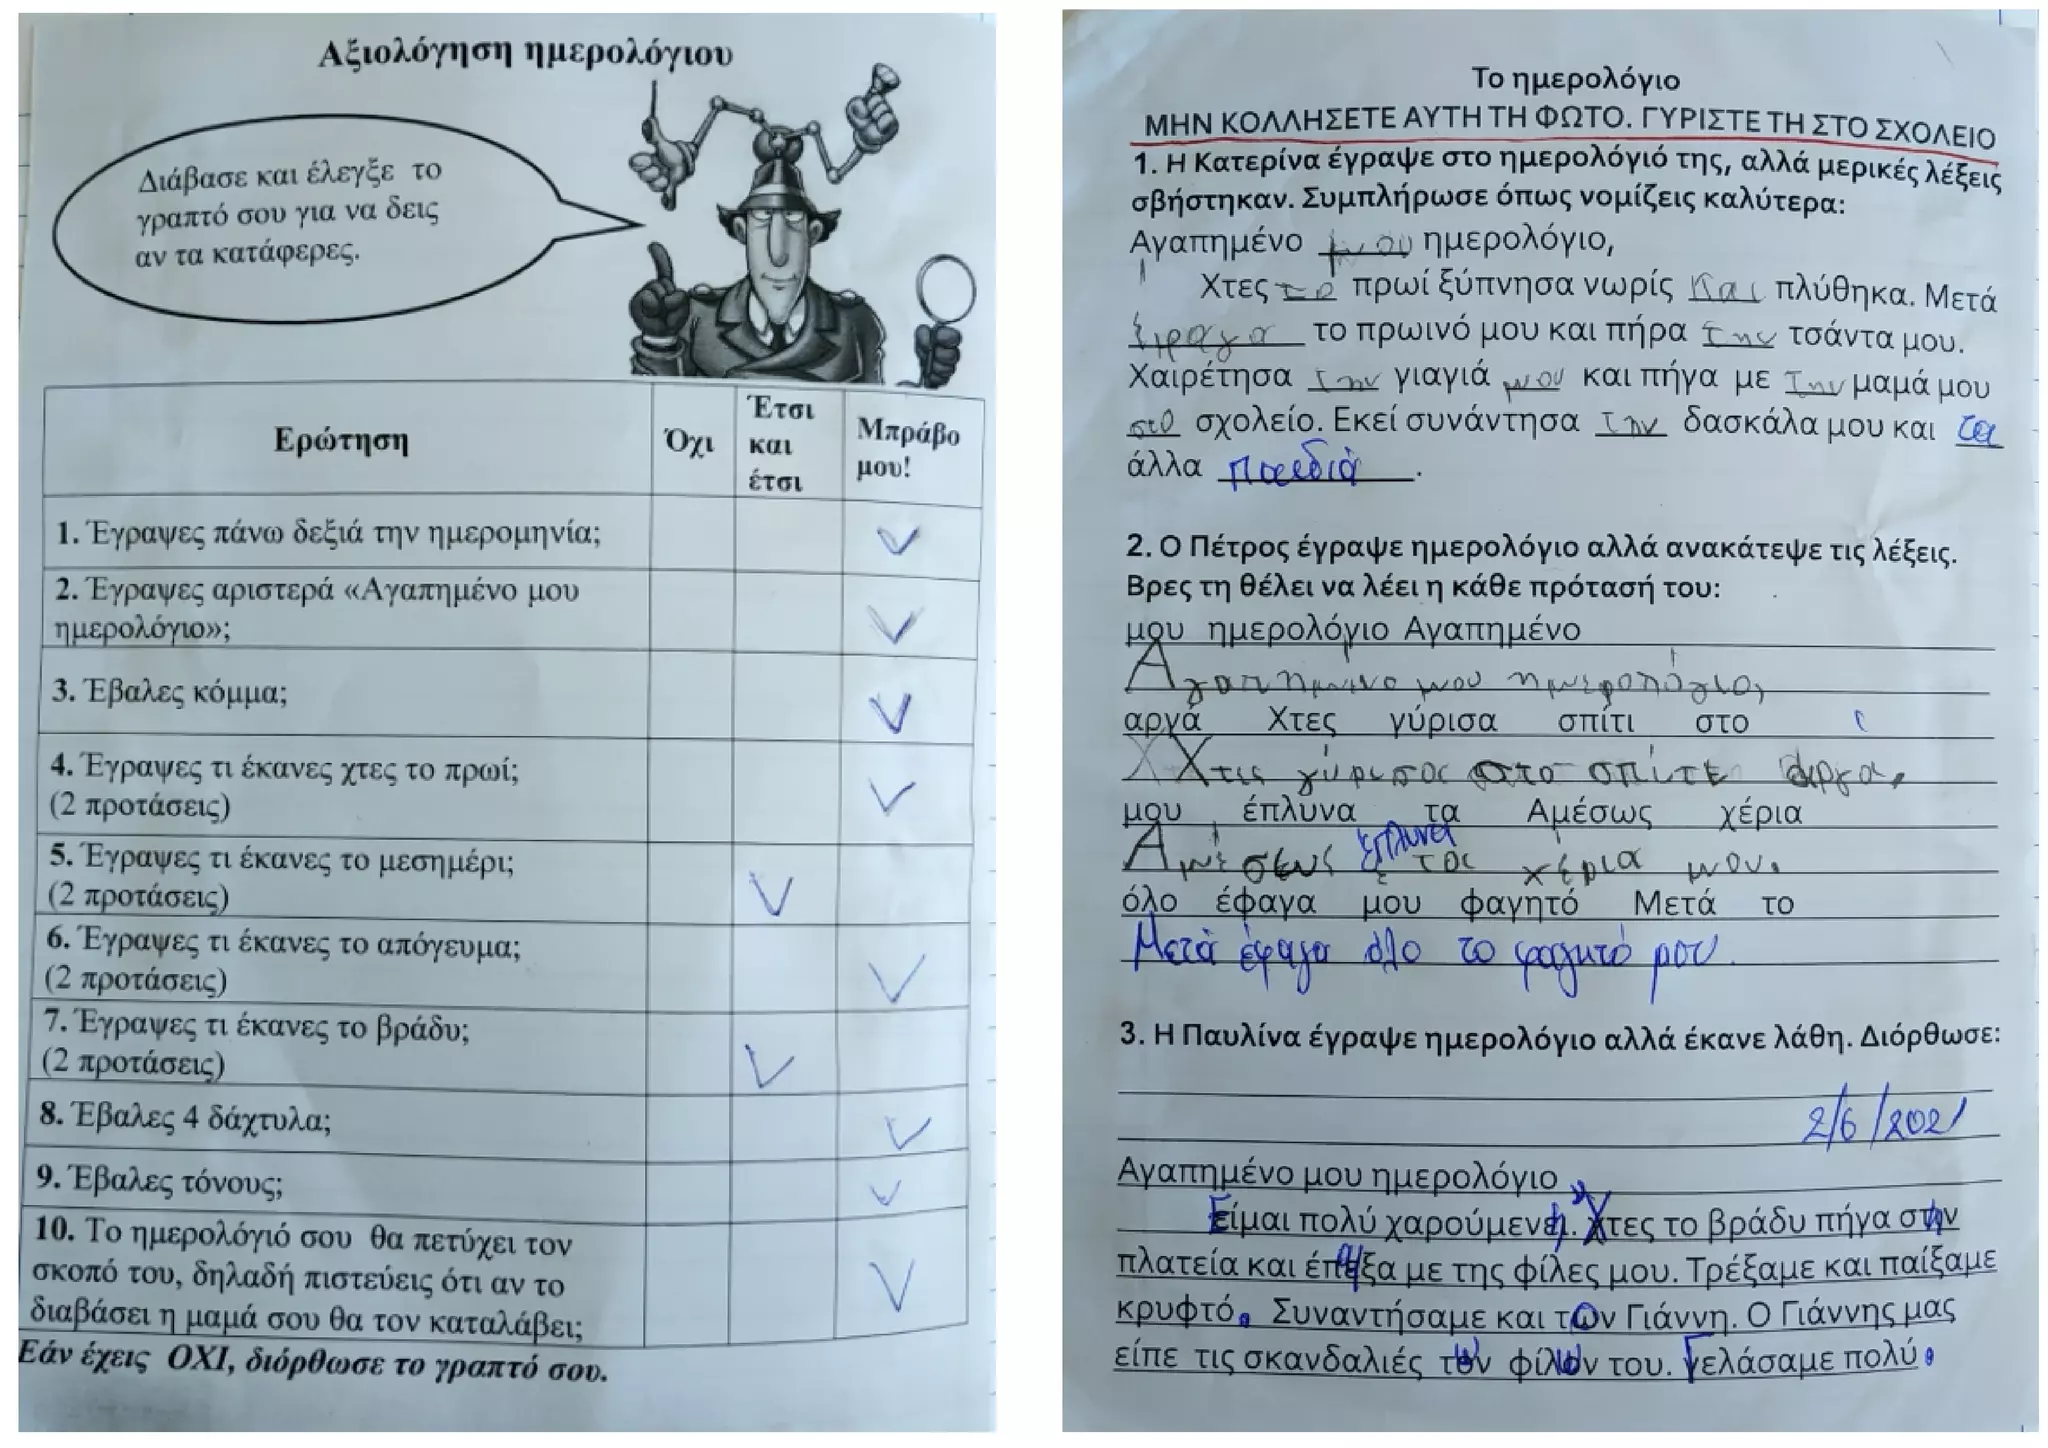 Αξιολόγηση ημερολόγιου
Διάβασε και έλεγξε το
γραπτό σου για να δεις
αν τα κατάφερες.
Ερώτηση
Όχι
Έτσι
και
έτσι
Μπράβο
μου!
1. Έγραψες πάνω δεξιά την ημερομηνία;
2. Έγραψες αριστερά «Αγαπημένο μου
ημερολόγιο»;
3. Έβαλες κόμμα;
4. Έγραψες τι έκανες χτες το πρωί;
(2 προτάσεις)
5. Έγραψες τι έκανες το μεσημέρι;
(2 προτάσεις)
6. Έγραψες τι έκανες το απόγευμα;
(2 προτάσεις)
7. Έγραψες τι έκανες το βράδυ;
(2 προτάσεις)
8. Έβαλες 4 δάχτυλα;
9. Έβαλες τόνους;
10. Το ημερολόγιό σου θα πετύχει τον
σκοπό του, δηλαδή πιστεύεις ότι αν το
διαβάσει η μαμά σου θα τον καταλάβει;
Εάν έχεις ΟΧΙ, διόρθωσε το γραπτό σου.
Το ημερολόγιο
ΜΗΝ ΚΟΛΛΗΣΕΤΕ ΑΥΤΗ ΤΗ ΦΩΤΟ. ΓΥΡΙΣΤΕ ΤΗ ΣΤΟ ΣΧΟΛΕΙΟ
1. Η Κατερίνα έγραψε στο ημερολόγιό της, αλλά μερικές λέξεις
σβήστηκαν. Συμπλήρωσε όπως νομίζεις καλύτερα:
Αγαπημένο μου ημερολόγιο,
Χτες το πρωί ξύπνησα νωρίς και πλύθηκα. Μετά
το πρωινό μου και πήρα την τσάντα μου.
Χαιρέτησα την γιαγιά μου και πήγα με την μαμά μου
στο σχολείο. Εκεί συνάντησα την δασκάλα μου και τα
άλλα παιδιά.
2. Ο Πέτρος έγραψε ημερολόγιο αλλά ανακάτεψε τις λέξεις.
Βρες τη θέλει να λέει η κάθε πρότασή του:
μου ημερολόγιο Αγαπημένο
Αγαπημένο μου ημερολόγιο,
αργά Χτες γύρισα σπίτι στο
Χτες γύρισα στο σπίτι αργα.
μου έπλυνα τα Αμέσως χέρια
Αμέσως έπλυνα τα χέρια μου.
όλο έφαγα μου φαγητό Μετά το
Μετά έφαγα όλο το φαγητό μου.
3. Η Παυλίνα έγραψε ημερολόγιο αλλά έκανε λάθη. Διόρθωσε:
2/6/2021
Αγαπημένο μου ημερολόγιο,
Είμαι πολύ χαρούμενη. Χτες το βράδυ πήγα στην
πλατεία και έπαιξα με της φίλες μου. Τρέξαμε και παίξαμε
κρυφτό. Συναντήσαμε και τον Γιάννη. Ο Γιάννης μας
είπε τις σκανδαλιές των φίλων του. Γελάσαμε πολύ.